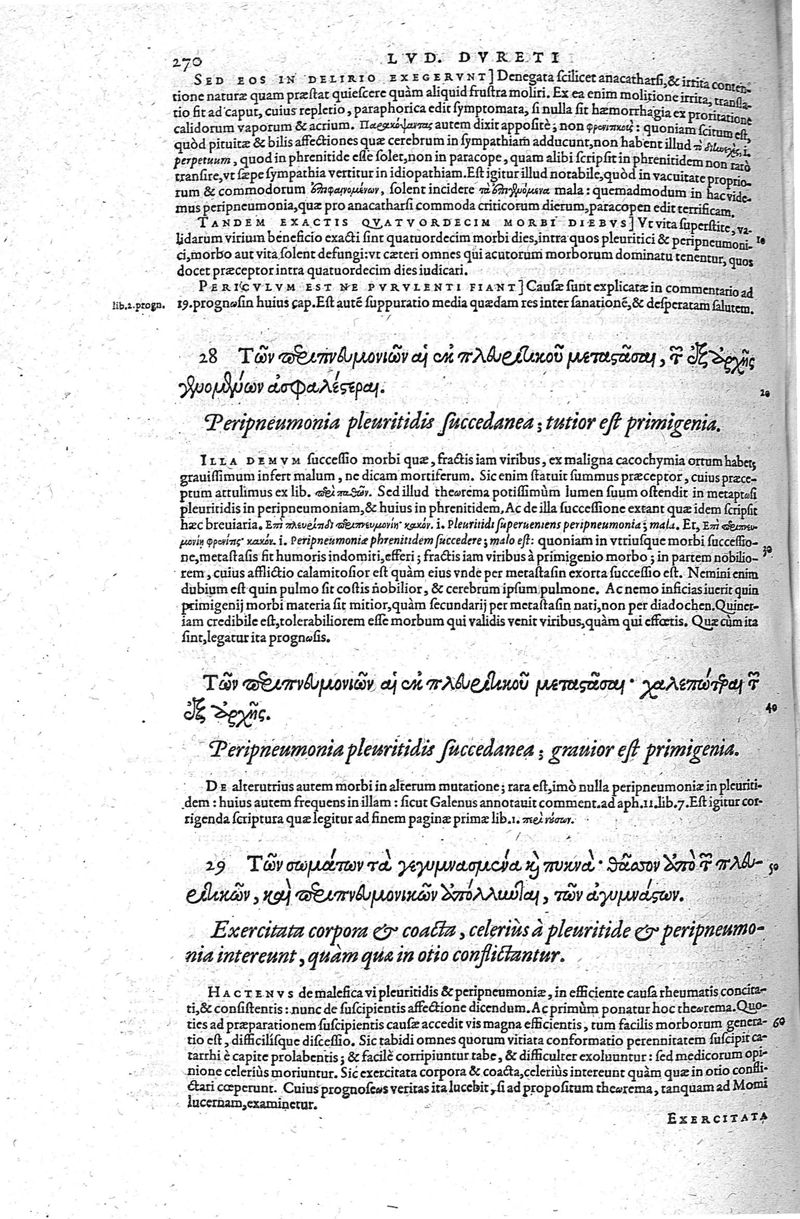 270 LVD. DVRETI
SED EOS IN DELIRIO EXEGERVNT] Denegata ſcilicet anacatharſi, & irrita conten-
tione naturæ quam præſtat quieſcere quàm aliquid fruſtra moliri. Ex ea enim molitione irrita, tranſla-
tio fit ad caput, cuius repletio, paraphorica edit ſymptomata, ſi nulla ſit hæmorrhagia ex proritatione
calidorum vaporum & acrium. Παρακόψαντας autem dixit appoſitè; non φρενιτικοὶ: quoniam ſcitum eſt,
quòd pituitæ & bilis affectiones quæ cerebrum in ſympathiam adducunt, non habent illud τὸ διωεχὲς i.
perpetuum, quod in phrenitide eſſe ſolet, non in paracope, quam alibi ſcripſit in phrenitidem non rarò
tranſire, vt ſæpe ſympathia vertitur in idiopathiam. Eſt igitur illud notabile, quòd in vacuitate proprio-
rum & commodorum ἐπιφαινομένων, ſolent incidere τὰ ἐπιγινόμενα mala: quemadmodum in hac vide-
mus peripneumonia, quæ pro anacatharſi commoda criticorum dierum, paracopen edit terrificam.
TANDEM EXACTIS QVATVORDECIM MORBI DIEBVS] Vt vita ſuperſtite, va-
lidarum virium beneficio exacti ſint quatuordecim morbi dies, intra quos pleuritici & peripneumoni- 10
ci, morbo aut vita ſolent defungi: vt cæteri omnes qui acutorum morborum dominatu tenentur, quos
docet præceptor intra quatuordecim dies iudicari.
PERICVLVM EST NE PVRVLENTI FIANT] Cauſæ ſunt explicatæ in commentario ad
lib.2.progn. 19. prognωſin huius cap. Eſt autē ſuppuratio media quædam res inter ſanationē, & deſperatam ſalutem.
28 Τῶν περιπνευμονιῶν αἱ ἐκ πλευριτικοῦ μεταςᾶσαι, τῶν ἐξ ἀρχῆς
γινομένων ἀσφαλέςεραι. 20
Peripneumonia pleuritidis ſuccedanea; tutior eſt primigenia.
ILLA DEMVM ſucceſſio morbi quæ, fractis iam viribus, ex maligna cacochymia ortum habet;
grauiſſimum infert malum, ne dicam mortiferum. Sic enim ſtatuit ſummus præceptor, cuius præce-
ptum attulimus ex lib. περὶ παθῶν. Sed illud theωrema potiſſimùm lumen ſuum oſtendit in metaptωſi
pleuritidis in peripneumoniam, & huius in phrenitidem. Ac de illa ſucceſſione extant quæ idem ſcripſit
hæc breuiaria. Ἐπὶ πλευρίτιδι περιπνευμονίη· κακόν. i. Pleuritidi ſuperueniens peripneumonia; mala. Et, Ἐπὶ περιπνευ-
μονίῃ φρενῖτις· κακόν. i. Peripneumoniæ phrenitidem ſuccedere; malo eſt: quoniam in vtriuſque morbi ſucceſſio-
ne, metaſtaſis fit humoris indomiti, efferi; fractis iam viribus à primigenio morbo; in partem nobilio- 30
rem, cuius afflictio calamitoſior eſt quàm eius vnde per metaſtaſin exorta ſucceſſio eſt. Nemini enim
dubium eſt quin pulmo ſit coſtis nobilior, & cerebrum ipſum pulmone. Ac nemo inficias iuerit quin
primigenij morbi materia ſit mitior, quàm ſecundarij per metaſtaſin nati, non per diadochen. Quinet-
iam credibile eſt, tolerabiliorem eſſe morbum qui validis venit viribus, quàm qui effœtis. Quæ cùm ita
ſint, legatur ita prognωſis.
Τῶν περιπνευμονιῶν αἱ ἐκ πλευριτικοῦ μεταςᾶσαι· χαλεπώτεραι τῶν
ἐξ ἀρχῆς. 40
Peripneumonia pleuritidis ſuccedanea; grauior eſt primigenia.
DE alterutrius autem morbi in alterum mutatione; rara eſt, imò nulla peripneumoniæ in pleuriti-
dem: huius autem frequens in illam: ſicut Galenus annotauit comment. ad aph. 11. lib. 7. Eſt igitur cor-
rigenda ſcriptura quæ legitur ad finem paginæ primæ lib. 1. περὶ νόσων.
29 Τῶν σωμάτων τὰ γεγυμνασμένα καὶ πυκνὰ· θᾶσσον ὑπὸ τῶν πλευ- 50
ριτικῶν, καὶ περιπνευμονικῶν ἀπόλλυνται, τῶν ἀγυμνάςων.
Exercitata corpora & coacta, celeriùs à pleuritide & peripneumo-
nia intereunt, quàm quæ in otio conflictantur.
HACTENVS de malefica vi pleuritidis & peripneumoniæ, in efficiente cauſa rheumatis concita-
ti, & conſiſtentis: nunc de ſuſcipientis affectione dicendum. Ac primùm ponatur hoc theωrema. Quo-
ties ad præparationem ſuſcipientis cauſæ accedit vis magna efficientis, tum facilis morborum genera- 60
tio eſt, difficiliſque diſceſſio. Sic tabidi omnes quorum vitiata conformatio perennitatem ſuſcipit ca-
tarrhi è capite prolabentis; & facilè corripiuntur tabe, & difficulter exoluuntur: ſed medicorum opi-
nione celeriùs moriuntur. Sic exercitata corpora & coacta, celeriùs intereunt quàm quæ in otio confli-
ctari cœperunt. Cuius prognoſeως veritas ita lucebit, ſi ad propoſitum theωrema, tanquam ad Momi
lucernam, examinetur.
EXERCITATA